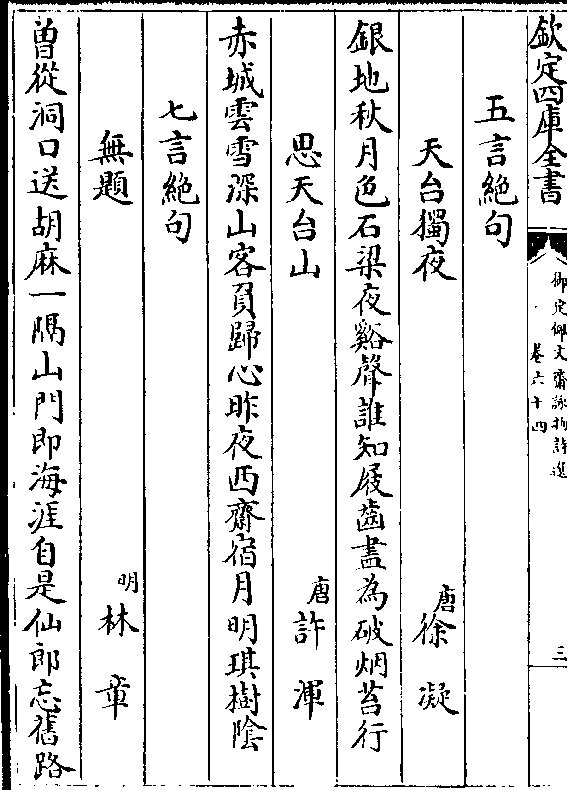 欽定四庫全書
御定佩文齋詠物詩選
卷六十四
三
五言絶句
天台獨夜
唐徐凝
銀地秋月色石梁夜谿聲誰知屐齒盡為破烟苔行
思天台山
唐許渾
赤城雲雪深山客負歸心昨夜西齋宿月明琪樹陰
七言絶句
無題
明林章
曽從洞口送胡麻一隔山門即海涯自是仙郎忘舊路